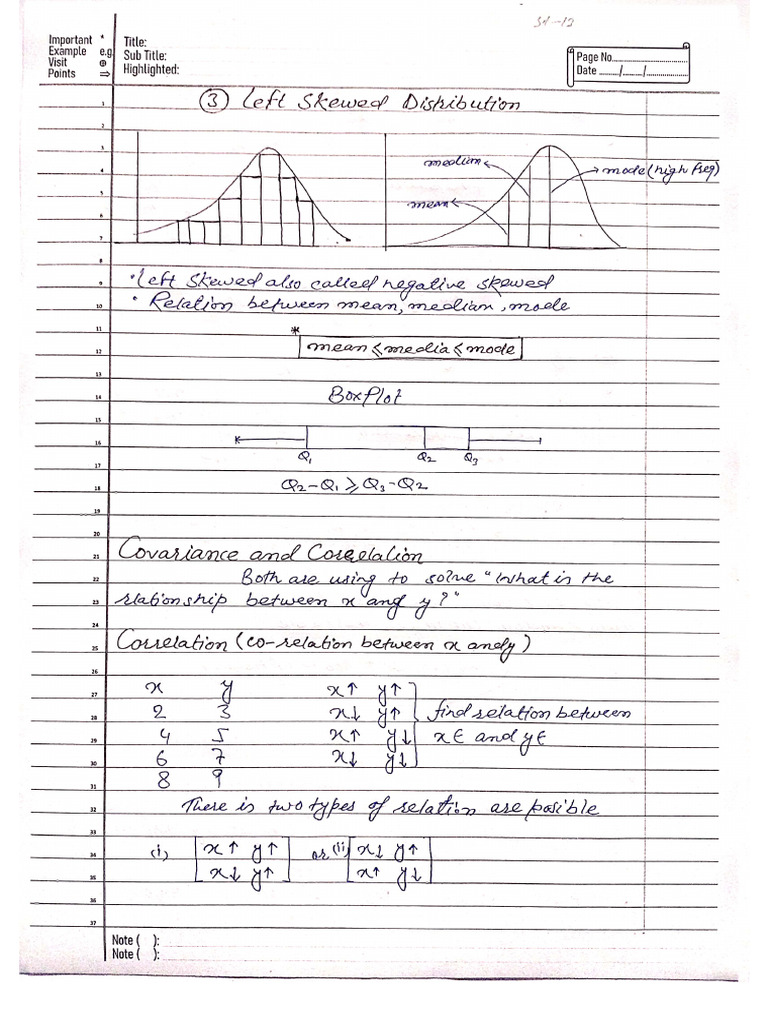 St-13
Important *
Example e.g
Visit
Points ⇒
Title:
Sub Title:
Highlighted:
Page No.
Date ....../....../......
③ Left Skewed Distribution
medium
mean
mode (high freq)
• Left Skewed also called negative skewed
• Relation between mean, median, mode
*
mean ≤ media ≤ mode
BoxPlot
Q1 Q2 Q3
Q2-Q1 ≥ Q3-Q2
Covariance and Correlation
Both are using to solve "what is the
rlationship between x and y?"
Correlation (co-relation between x and y)
x y x↑ y↑
2 3 x↓ y↑ find relation between
4 5 x↑ y↓ x∈ and y∈
6 7 x↓ y↓
8 9
There is two types of relation are posible
(i) x↑ y↑ or (ii) x↓ y↑
x↓ y↑ x↑ y↓
1
2
3
4
5
6
7
8
9
10
11
12
13
14
15
16
17
18
19
20
21
22
23
24
25
26
27
28
29
30
31
32
33
34
35
36
37
Note ( ):
Note ( ):